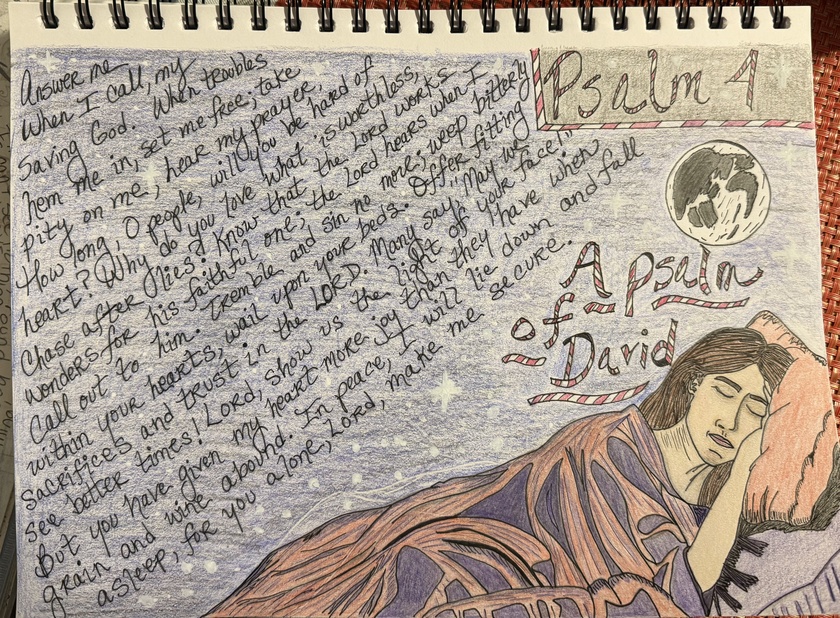 Psalm 4
A psalm
of
David
Answer me
When I call, my
saving God. When troubles
hem me in, set me free; take
pity on me, hear my prayer,
How long, O people, will you be hard of
heart? Why do you love what is worthless,
Chase after lies? Know that the Lord works
wonders for his faithful one; the Lord hears when I
Call out to him. Tremble and sin no more; weep bitterly
within your hearts, wail upon your beds. Offer fitting
sacrifices and trust in the LORD. Many say, "May we
see better times! Lord, show us the light off your face!"
But you have given my heart more joy than they have when
grain and wine abound. In peace, I will lie down and fall
asleep, for you alone, Lord, make me secure.